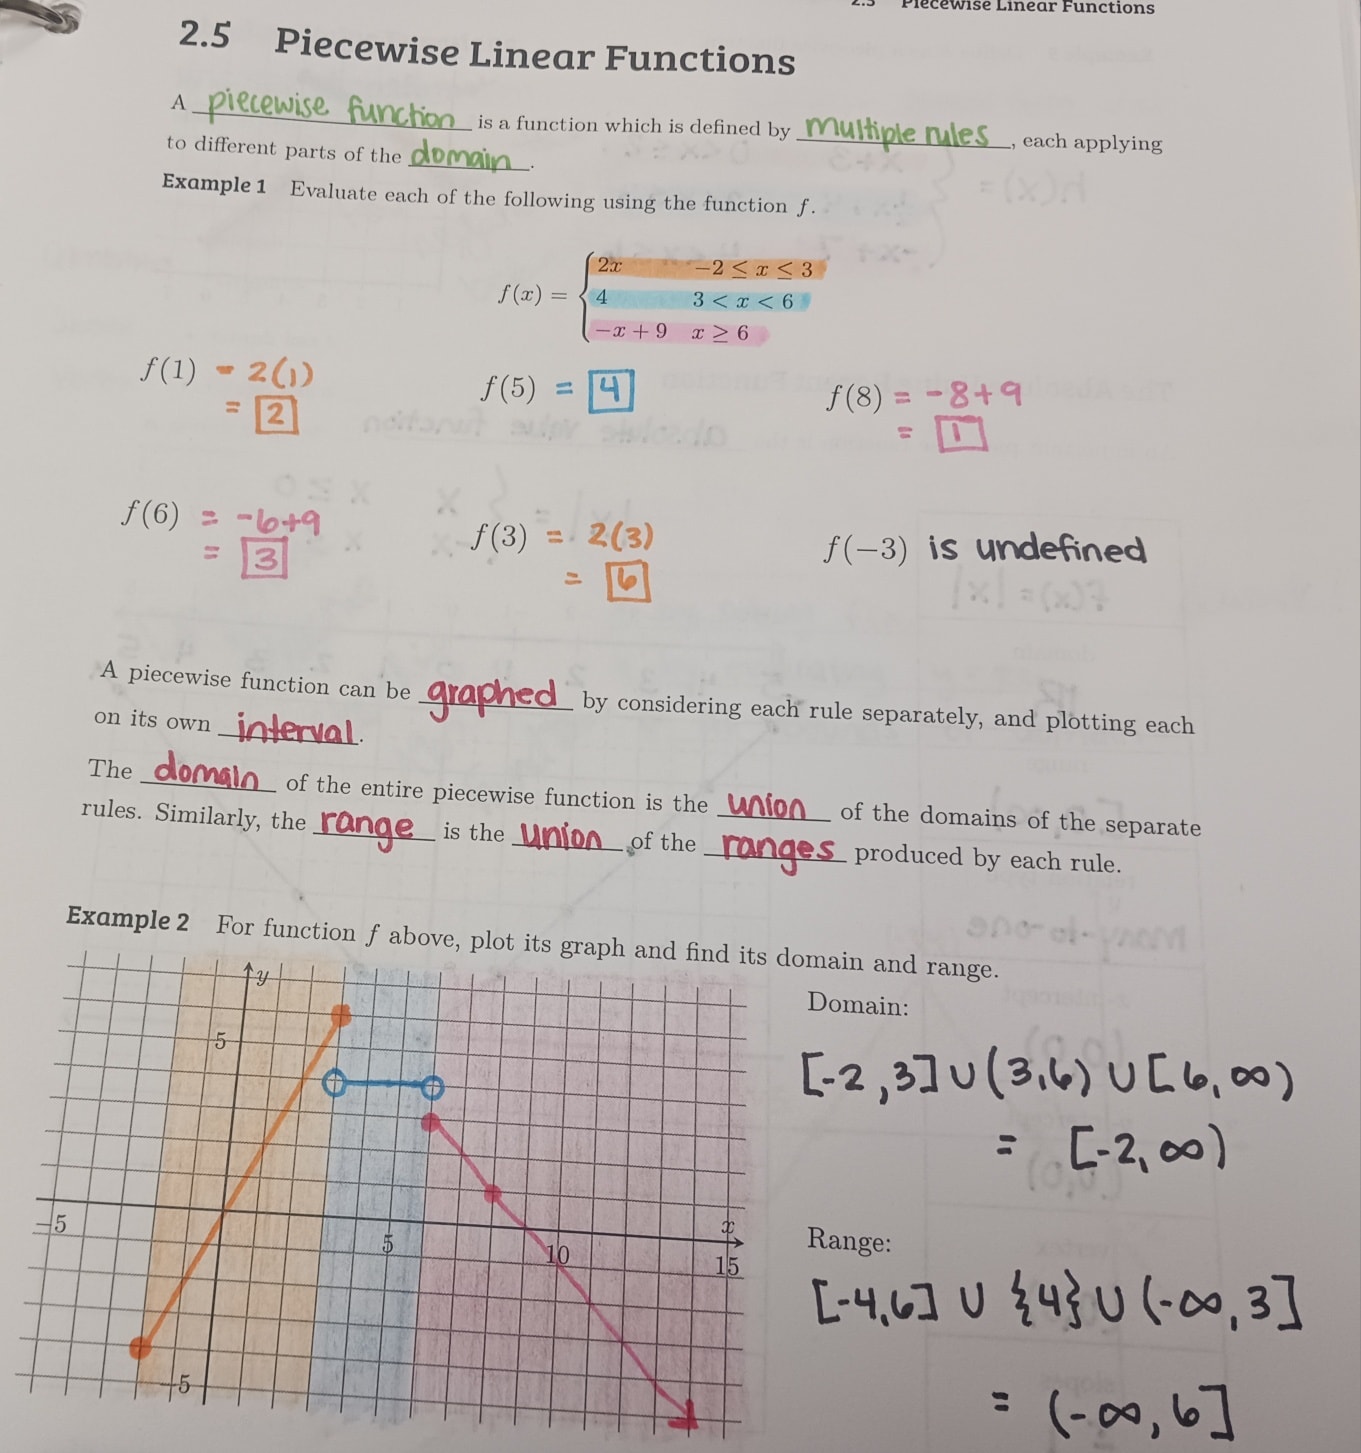 2.5 Piecewise Linear Functions
2.5 Piecewise Linear Functions
A piecewise function is a function which is defined by multiple rules, each applying
to different parts of the domain.
Example 1 Evaluate each of the following using the function f.
f(x) = { 2x −2 ≤ x ≤ 3
4 3 < x < 6
−x + 9 x ≥ 6
f(1) = 2(1)
= 2
f(5) = 4
f(8) = -8+9
= 1
f(6) = -6+9
= 3
f(3) = 2(3)
= 6
f(−3) is undefined
A piecewise function can be graphed by considering each rule separately, and plotting each
on its own interval.
The domain of the entire piecewise function is the union of the domains of the separate
rules. Similarly, the range is the union of the ranges produced by each rule.
Example 2 For function f above, plot its graph and find its domain and range.
y
5
−5
5
10
x
15
−5
Domain:
[-2,3] ∪ (3,6) ∪ [6,∞)
= [-2,∞)
Range:
[-4,6] ∪ {4} ∪ (-∞,3]
= (-∞,6]